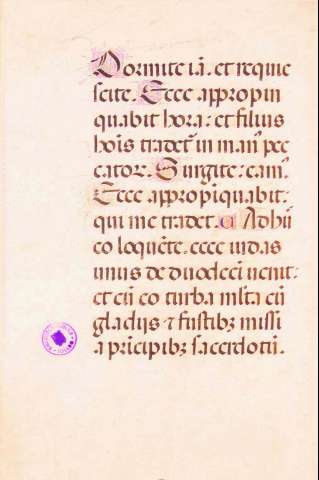 Dormite iā. et requie
scite. Ecce appropin
quabit hora: et filius
hoīs tradet᷒ in man᷒ pec
cator. Surgite: eam᷒.
Ecce appropīquabit:
qui me tradet. Adhu᷒
co loquēte. ecce iudas
unus de duodecī uenit:
et cū eo turba mlta cū
gladijs ⁊ fustibꝫ missi
a prīcipibꝫ sacerdotū.